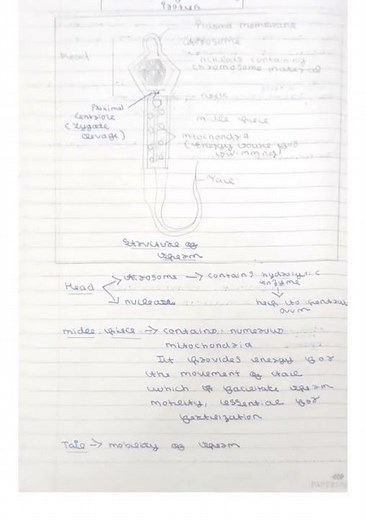 Protien
Plasma membrane
Acrosome
Head
nucleus containing
chromosome material
neck
Proximal
centriole
(zygote
clevage)
middle piece
mitochondria
(energy source for
swimming)
Tail
Structure of
sperm
Head
Acrosome → contains hydrolytic
enzyme
nucleus
help to penetrate
ovum
middle piece → contains numerous
mitochondria
It provides energy for
the movement of tail
which facilitate sperm
motility, essential for
fertilization
Tail → mobility of sperm